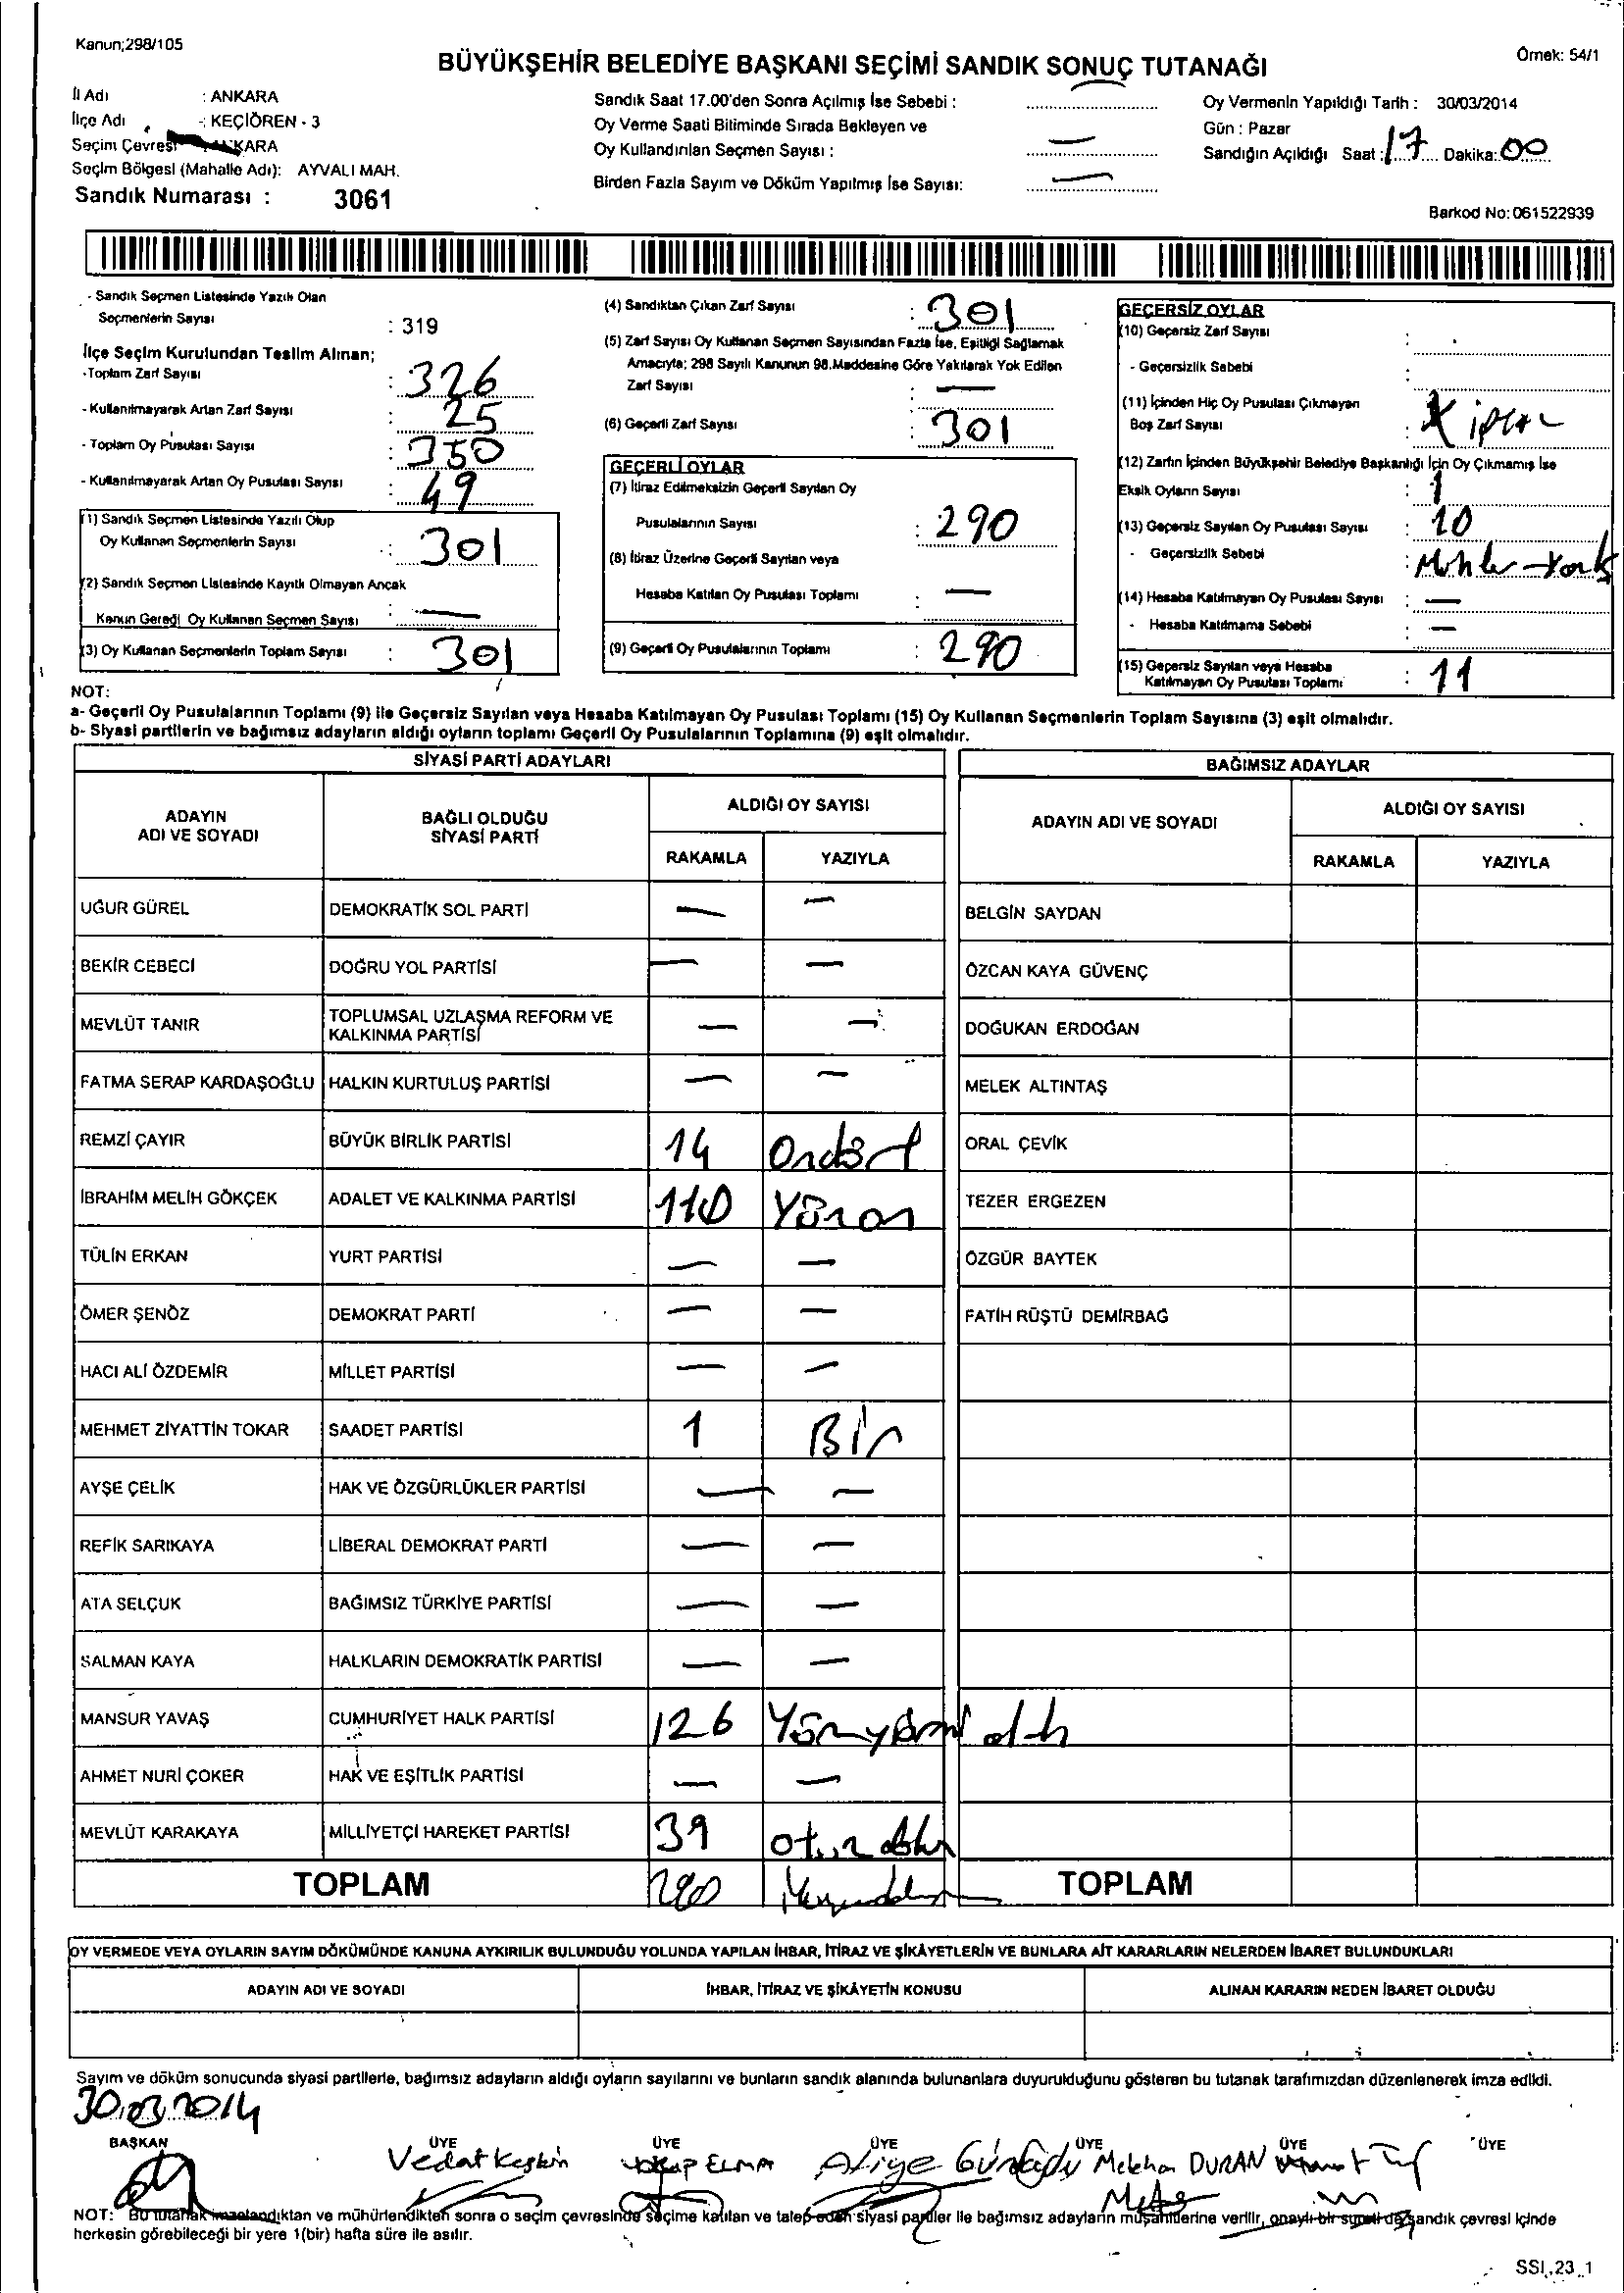 Kanun;298/105
BÜYÜKŞEHİR BELEDİYE BAŞKANI SEÇİMİ SANDIK SONUÇ TUTANAĞI
Örnek: 54/1
İl Adı : ANKARA
İlçe Adı : KEÇİÖREN - 3
Seçim Çevresi
Seçim Bölgesi (Mahalle Adı): AYVALI MAH.
Sandık Numarası : 3061
Sandık Saat 17.00'den Sonra Açılmış İse Sebebi :
Oy Verme Saati Bitiminde Sırada Bekleyen ve
Oy Kullandırılan Seçmen Sayısı : —
Birden Fazla Sayım ve Döküm Yapılmış İse Sayısı: —
Oy Vermenin Yapıldığı Tarih : 30/03/2014
Gün : Pazar
Sandığın Açıldığı Saat : 17 Dakika: 00
Barkod No: 061522939
- Sandık Seçmen Listesinde Yazılı Olan
Seçmenlerin Sayısı : 319
İlçe Seçim Kurulundan Teslim Alınan;
-Toplam Zarf Sayısı : 326
- Kullanılmayarak Artan Zarf Sayısı : 25
- Toplam Oy Pusulası Sayısı : 350
- Kullanılmayarak Artan Oy Pusulası Sayısı : 49
(1) Sandık Seçmen Listesinde Yazılı Olup
Oy Kullanan Seçmenlerin Sayısı : 301
(2) Sandık Seçmen Listesinde Kayıtlı Olmayan Ancak
Kanun Gereği Oy Kullanan Seçmen Sayısı : —
(3) Oy Kullanan Seçmenlerin Toplam Sayısı : 301
(4) Sandıktan Çıkan Zarf Sayısı : 301
(5) Zarf Sayısı Oy Kullanan Seçmen Sayısından Fazla İse, Eşitliği Sağlamak
Amacıyla; 298 Sayılı Kanunun 98.Maddesine Göre Yakılarak Yok Edilen
Zarf Sayısı : —
(6) Geçerli Zarf Sayısı : 301
GEÇERLİ OYLAR
(7) İtiraz Edilmeksizin Geçerli Sayılan Oy
Pusulalarının Sayısı : 290
(8) İtiraz Üzerine Geçerli Sayılan veya
Hesaba Katılan Oy Pusulası Toplamı : —
(9) Geçerli Oy Pusulalarının Toplamı : 290
GEÇERSİZ OYLAR
(10) Geçersiz Zarf Sayısı :
- Geçersizlik Sebebi :
(11) İçinden Hiç Oy Pusulası Çıkmayan
Boş Zarf Sayısı : iptal
(12) Zarfın İçinden Büyükşehir Belediye Başkanlığı İçin Oy Çıkmamış İse
Eksik Oyların Sayısı : 1
(13) Geçersiz Sayılan Oy Pusulası Sayısı : 10
- Geçersizlik Sebebi :
(14) Hesaba Katılmayan Oy Pusulası Sayısı : —
- Hesaba Katılmama Sebebi : —
(15) Geçersiz Sayılan veya Hesaba
Katılmayan Oy Pusulası Toplamı : 11
NOT:
a- Geçerli Oy Pusulalarının Toplamı (9) ile Geçersiz Sayılan veya Hesaba Katılmayan Oy Pusulası Toplamı (15) Oy Kullanan Seçmenlerin Toplam Sayısına (3) eşit olmalıdır.
b- Siyasi partilerin ve bağımsız adayların aldığı oyların toplamı Geçerli Oy Pusulalarının Toplamına (9) eşit olmalıdır.
SİYASİ PARTİ ADAYLARI
ADAYIN ADI VE SOYADI
BAĞLI OLDUĞU SİYASİ PARTİ
ALDIĞI OY SAYISI
RAKAMLA YAZIYLA
UĞUR GÜREL DEMOKRATİK SOL PARTİ — —
BEKİR CEBECİ DOĞRU YOL PARTİSİ — —
MEVLÜT TANIR TOPLUMSAL UZLAŞMA REFORM VE KALKINMA PARTİSİ — —
FATMA SERAP KARDAŞOĞLU HALKIN KURTULUŞ PARTİSİ — —
REMZİ ÇAYIR BÜYÜK BİRLİK PARTİSİ 14 Ondört
İBRAHİM MELİH GÖKÇEK ADALET VE KALKINMA PARTİSİ 110 Yüzon
TÜLİN ERKAN YURT PARTİSİ — —
ÖMER ŞENÖZ DEMOKRAT PARTİ — —
HACI ALİ ÖZDEMİR MİLLET PARTİSİ — —
MEHMET ZİYATTİN TOKAR SAADET PARTİSİ 1 Bir
AYŞE ÇELİK HAK VE ÖZGÜRLÜKLER PARTİSİ — —
REFİK SARIKAYA LİBERAL DEMOKRAT PARTİ — —
ATA SELÇUK BAĞIMSIZ TÜRKİYE PARTİSİ — —
SALMAN KAYA HALKLARIN DEMOKRATİK PARTİSİ — —
MANSUR YAVAŞ CUMHURİYET HALK PARTİSİ 126 Yüzyirmi altı
AHMET NURİ ÇOKER HAK VE EŞİTLİK PARTİSİ — —
MEVLÜT KARAKAYA MİLLİYETÇİ HAREKET PARTİSİ 39 otuz dokuz
TOPLAM 290
BAĞIMSIZ ADAYLAR
ADAYIN ADI VE SOYADI
ALDIĞI OY SAYISI
RAKAMLA YAZIYLA
BELGİN SAYDAN
ÖZCAN KAYA GÜVENÇ
DOĞUKAN ERDOĞAN
MELEK ALTINTAŞ
ORAL ÇEVİK
TEZER ERGEZEN
ÖZGÜR BAYTEK
FATİH RÜŞTÜ DEMİRBAĞ
TOPLAM
OY VERMEDE VEYA OYLARIN SAYIM DÖKÜMÜNDE KANUNA AYKIRILIK BULUNDUĞU YOLUNDA YAPILAN İHBAR, İTİRAZ VE ŞİKÂYETLERİN VE BUNLARA AİT KARARLARIN NELERDEN İBARET BULUNDUKLARI
ADAYIN ADI VE SOYADI
İHBAR, İTİRAZ VE ŞİKÂYETİN KONUSU
ALINAN KARARIN NEDEN İBARET OLDUĞU
Sayım ve döküm sonucunda siyasi partilerle, bağımsız adayların aldığı oyların sayılarını ve bunların sandık alanında bulunanlara duyurulduğunu gösteren bu tutanak tarafımızdan düzenlenerek imza edildi.
30.03.2014
BAŞKAN ÜYE ÜYE ÜYE ÜYE ÜYE ÜYE
Vedat Keskin ELMA Aliye DURAN
NOT: Bu tutanak imzalandıktan ve mühürlendikten sonra o seçim çevresinde seçime katılan ve talep eden siyasi partiler ile bağımsız adayların müşahitlerine verilir, onaylı bir sureti de sandık çevresi içinde
herkesin görebileceği bir yere 1(bir) hafta süre ile asılır.
SSI_23_1